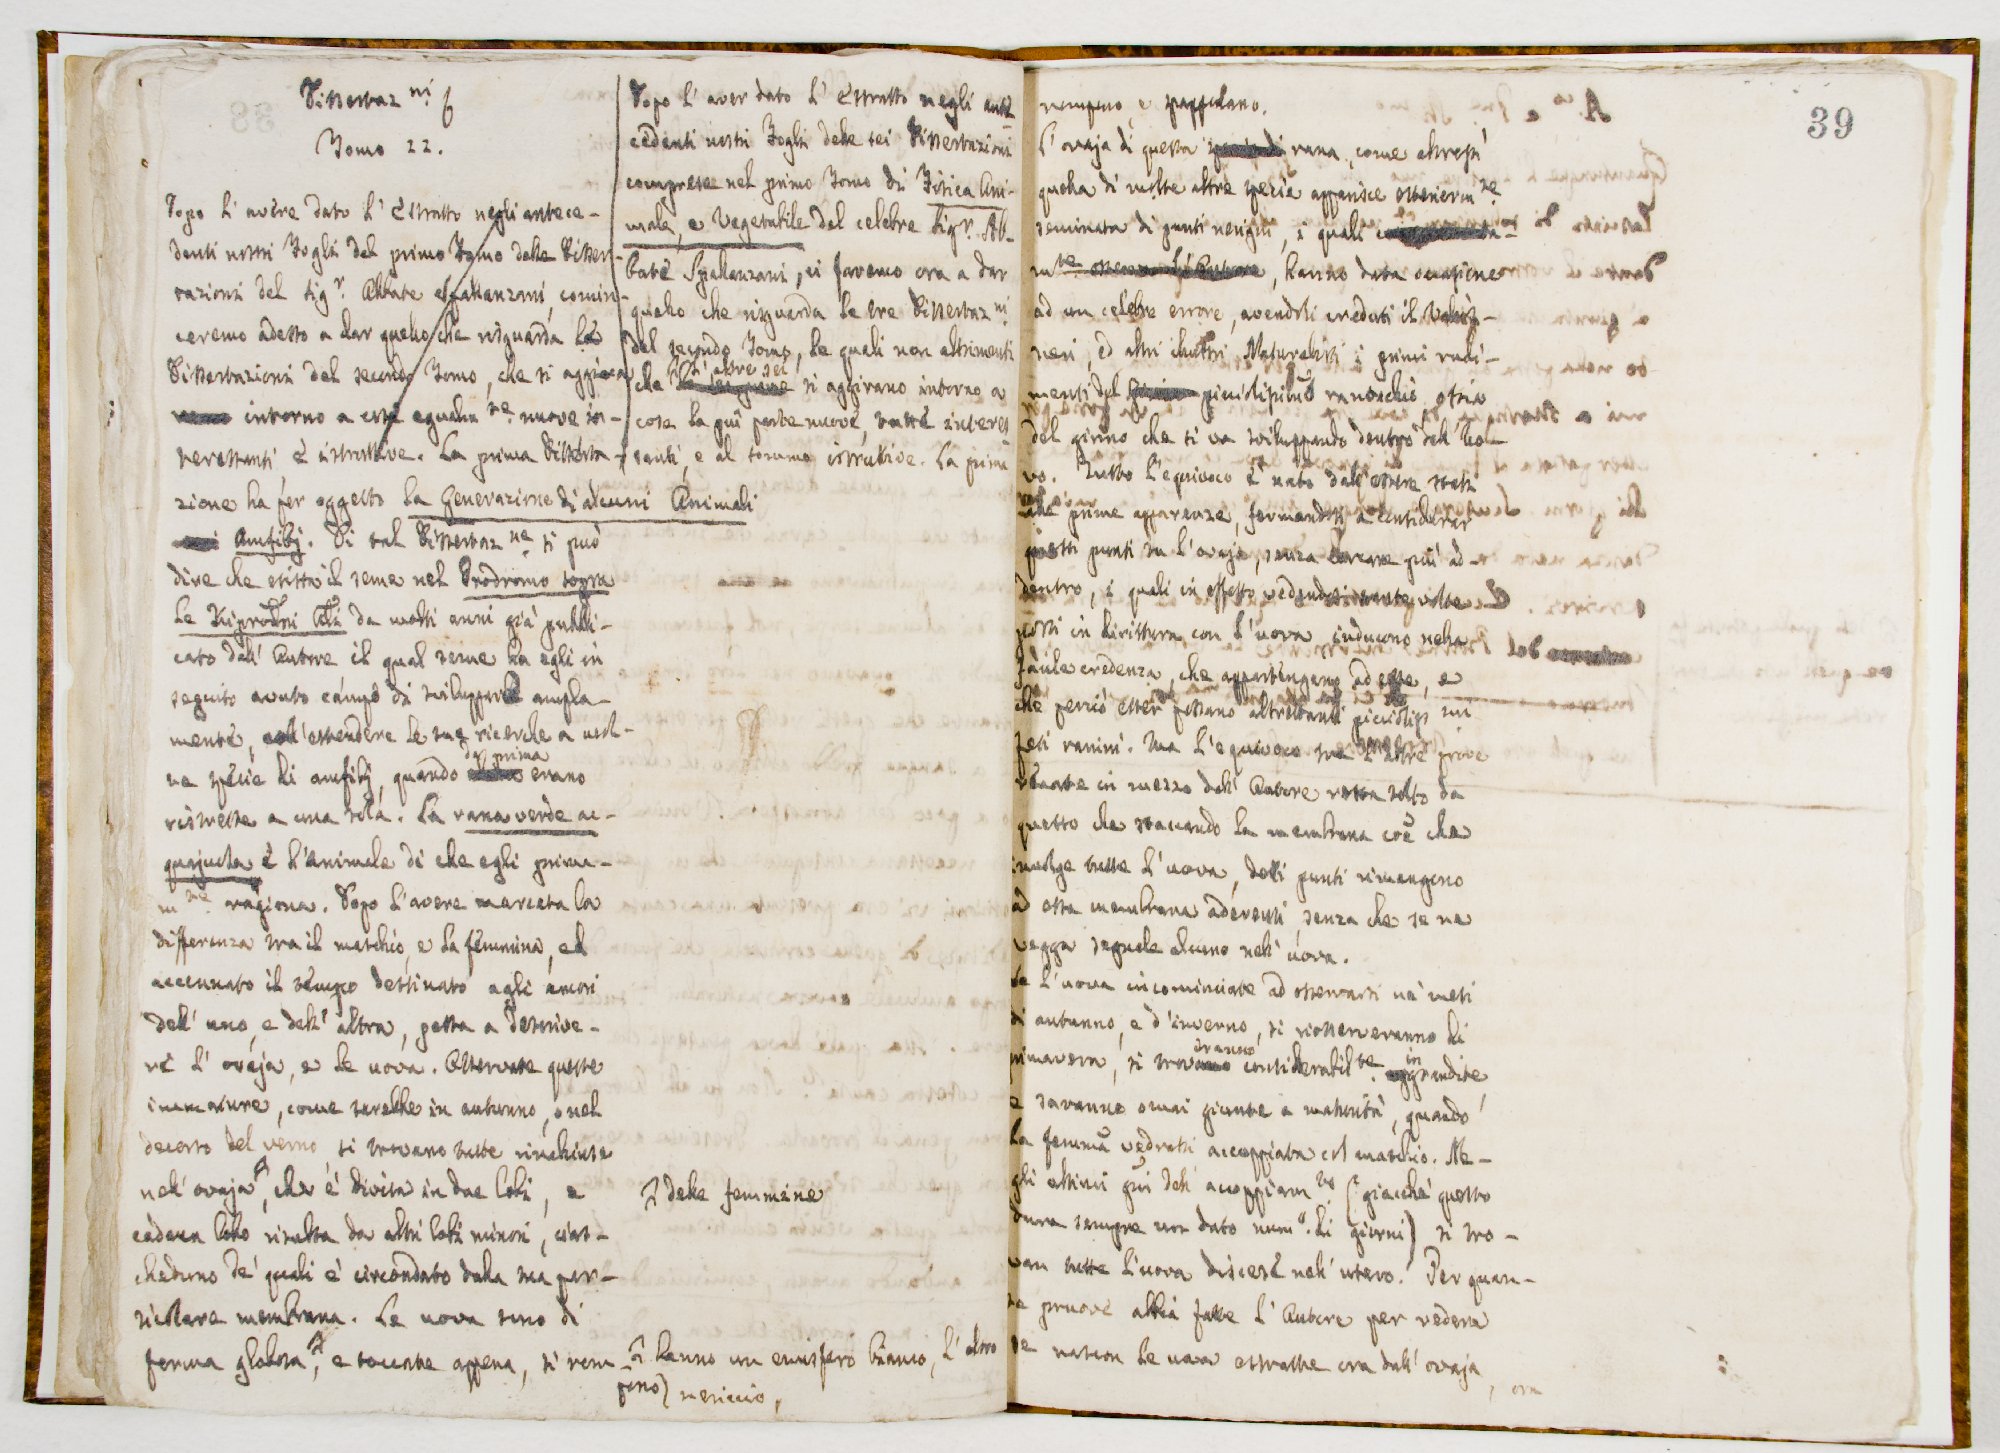 Dissertaz.ni 6
Tomo 22.
Dopo l'avere dato l'Estratto negli antece-
denti nostri Fogli del primo Tomo delle Disser-
tazioni del Sig.r Abbate Spallanzani, comin-
ceremo adesso a dar quello che risguarda le
Dissertazioni del secondo Tomo, che si aggira
intorno a cose egualm.te nuove in-
teressanti e istruttive. La prima Disserta-
zione ha per oggetto la Generazione di alcuni Animali
Amfibj. Di tal Dissertaz.ne si può
dire che esista il seme nel Prodromo sopra
le Riproduzioni da molti anni già pubbli-
cato dall'Autore il qual seme ha egli in
seguito avuto campo di sviluppare ampla-
mente, coll'estendere le sue ricerche a mol-
te spezie di amfibj, quando da prima erano
ristrette a una sola. La rana verde ac-
quajuola è l'animale di che egli prima-
m.te ragiona. Dopo l'avere marcata la
differenza tra il maschio, e la femmina, ed
accennato il tempo destinato agli amori
dell'uno, e dell'altra, passa a descrive-
re l'ovaja, e le uova. Osservate queste
immature, come sarebbe in autunno, o nel
decorso del verno si trovano tutte rinchiuse
nell'ovaja, che è divisa in due lobi, e
cadaun lobo risulta da altri lobi minori, cias-
cheduno de' quali è circondato dalla sua par-
ticolare membrana. Le uova sono di
forma globosa, e toccate appena, si rom-
pono
Dopo l'aver dato l'Estratto negli ante
cedenti nostri Fogli delle sei Dissertazioni
comprese nel primo Tomo di Fisica Ani-
male, e Vegetabile del celebre Sig.r Ab-
bate Spallanzani, ci faremo ora a dar
quello che risguarda le tre Dissertaz.ni
del secondo Tomo, le quali non altrimenti
che l'altre sei si aggirano intorno a
cose la più parte nuove, tutte interes
santi, e al sommo istruttive. La prima
delle femmine
hanno un emisfero bianco, l'altro
nericcio,
39
rompono, e spappolano.
L'ovaja di questa rana, come altresì
quella di molte altre spezie apparisce esteriorm.te
seminata di punti nerigni, i quali
hanno data occasione
ad un celebre errore, avendoli creduti il Valis-
neri, ed altri illustri Naturalisti i primi rudi-
menti del picciolissimo ranocchio ossia
del girino che si va sviluppando dentro dell'uo-
vo. Tutto l'equivoco è nato dall'essere stati
alle prime apparenze, fermandosi a considerar
questi punti su l'ovaja, senza cercare più ad-
dentro, i quali in effetto vedendosi tante volte
posti in dirittura con l'uova inducono nella
facile credenza, che appartengano ad esse, e
che perciò esser possano altrettanti picciolissimi
feti ranini. Ma l'equivoco tra l'altre prove
recate in mezzo dall'Autore resta tolto da
questo che staccando la membrana che
involge tutte l'uova, detti punti rimangono
ad essa membrana aderenti, senza che se ne
vegga segnale alcuno nell'uova.
Se l'uova incominciate ad osservarsi ne' mesi
di autunno, e d'inverno, si riosserveranno di
primavera, si troveranno considerabil.te ingrandite
e saranno omai giunte a maturità, quando
la femmina vedrassi accoppiata col maschio. Ne-
gli ultimi giorni dell'accoppiam.to (giacchè questo
dura sempre un dato num.o di giorni) si tro-
van tutte l'uova discese nell'utero. Per quan-
te pruove abbia fatte l'Autore per vedere
se nascon le uova estratte ora dall'ovaja, ora